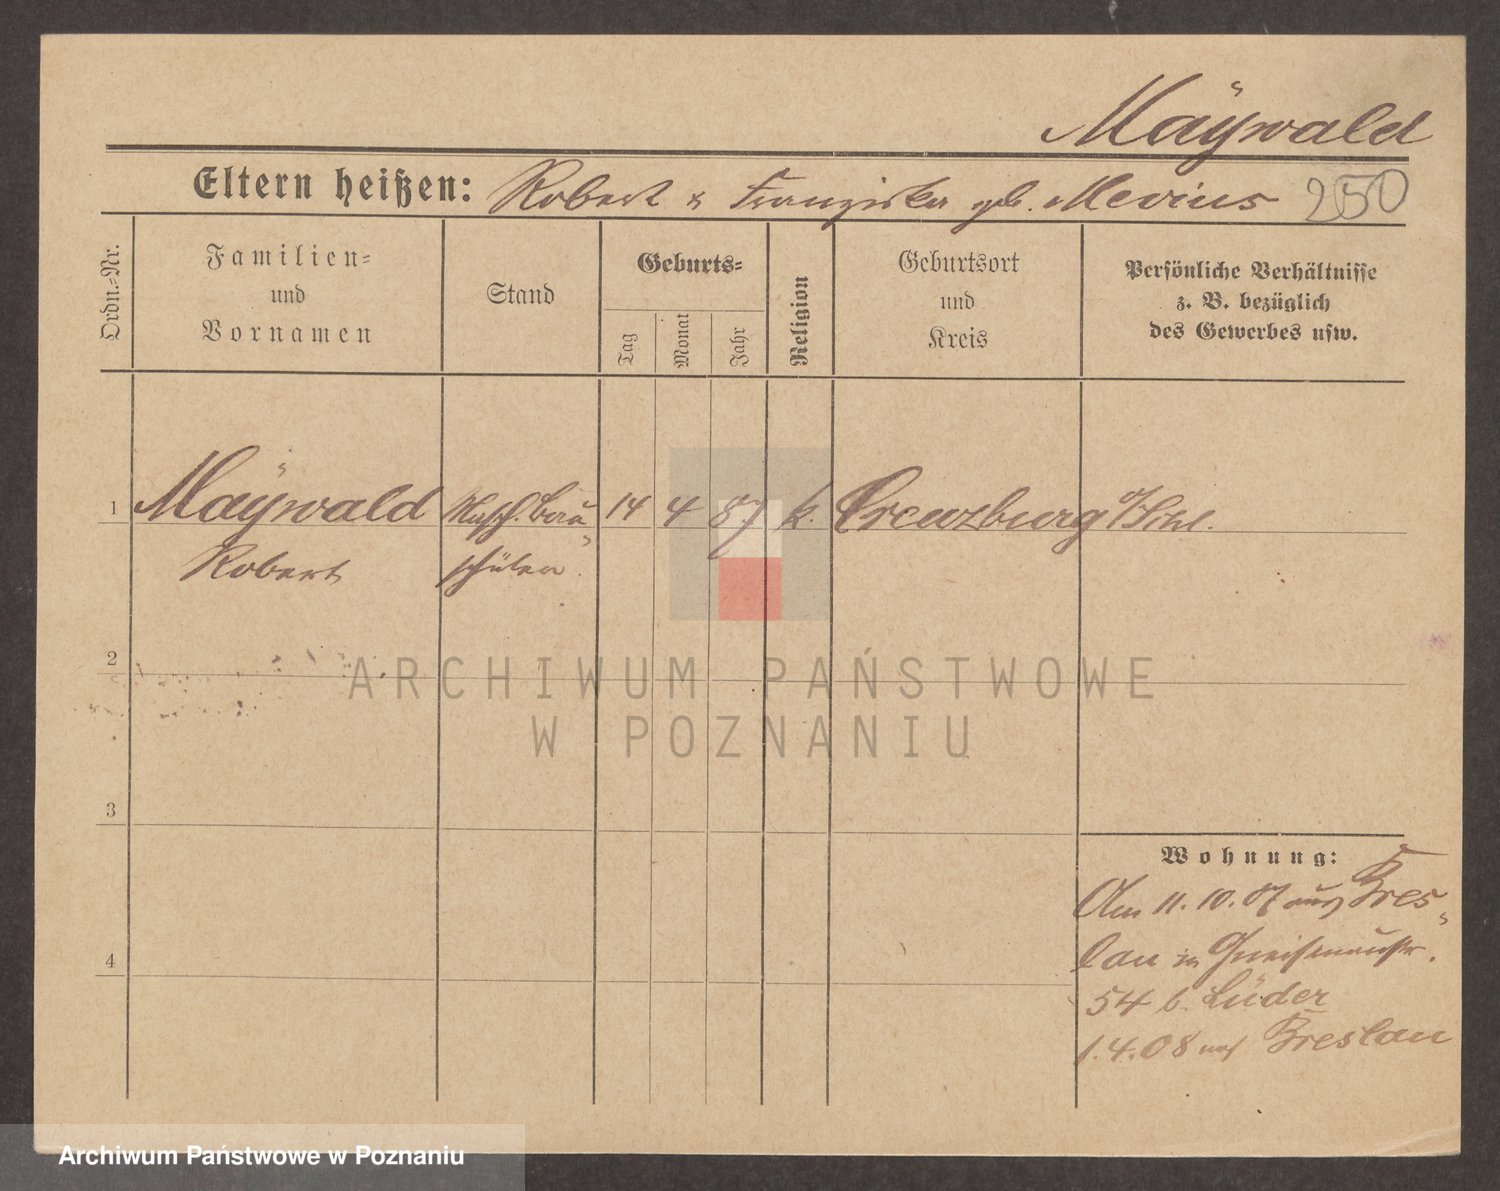 Maÿwald
Eltern heißen: Robert & Franziska geb. Mevius 250
Ordn.=Nr.
Familien=
und
Vornamen
Stand
Geburts=
Tag
Monat
Jahr
Religion
Geburtsort
und
Kreis
Persönliche Verhältnisse
z. B. bezüglich
des Gewerbes usw.
1 Maÿwald 14 4 87 k. Creuzburg o/Schl.
Robert schüler
2
3
4
Wohnung:
Am 11.10.07 aus Bres-
lau in Gneisenaustr.
54 b. Lüder
1.4.08 nach Breslau
ARCHIWUM PAŃSTWOWE
W POZNANIU
Archiwum Państwowe w Poznaniu